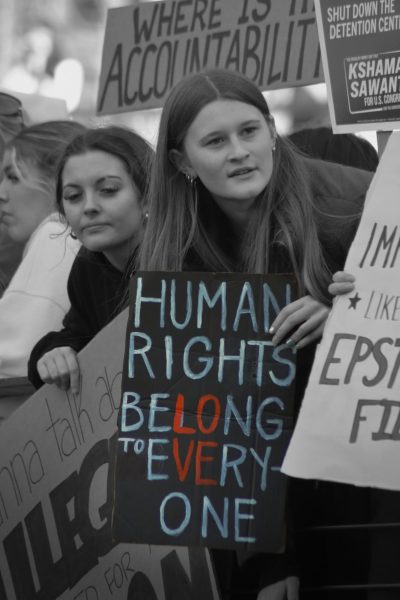 WHERE IS
ACCOUNTABILIT
SHUT DOWN THE
DETENTION CENT
KSHAMA
SAWANT
FOR U.S. CONGR
HUMAN
RIGHTS
BELONG
TO EVERY-
ONE
IM
LIKE
EPST
FI
nna talk ab
ILLEG
D FOR